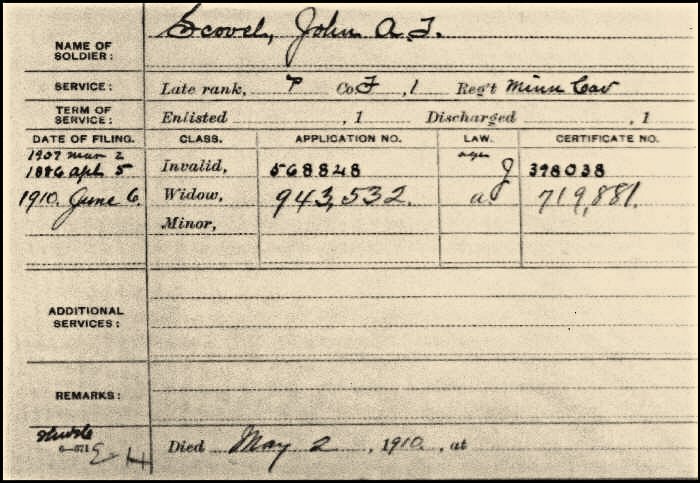 Scovel, John A. F.
NAME OF
SOLDIER:
SERVICE: Late rank, P Co F, 1 Reg't Minn Cav
TERM OF
SERVICE: Enlisted , 1 Discharged , 1
DATE OF FILING. CLASS. APPLICATION NO. LAW. CERTIFICATE NO.
1907 Mar 2
1886 Apl 5 Invalid, 568848 J 398038
1910. June 6. Widow, 943,532. a. 719,881.
Minor,
ADDITIONAL
SERVICES:
REMARKS:
6-671
Died May 2, 1910, at